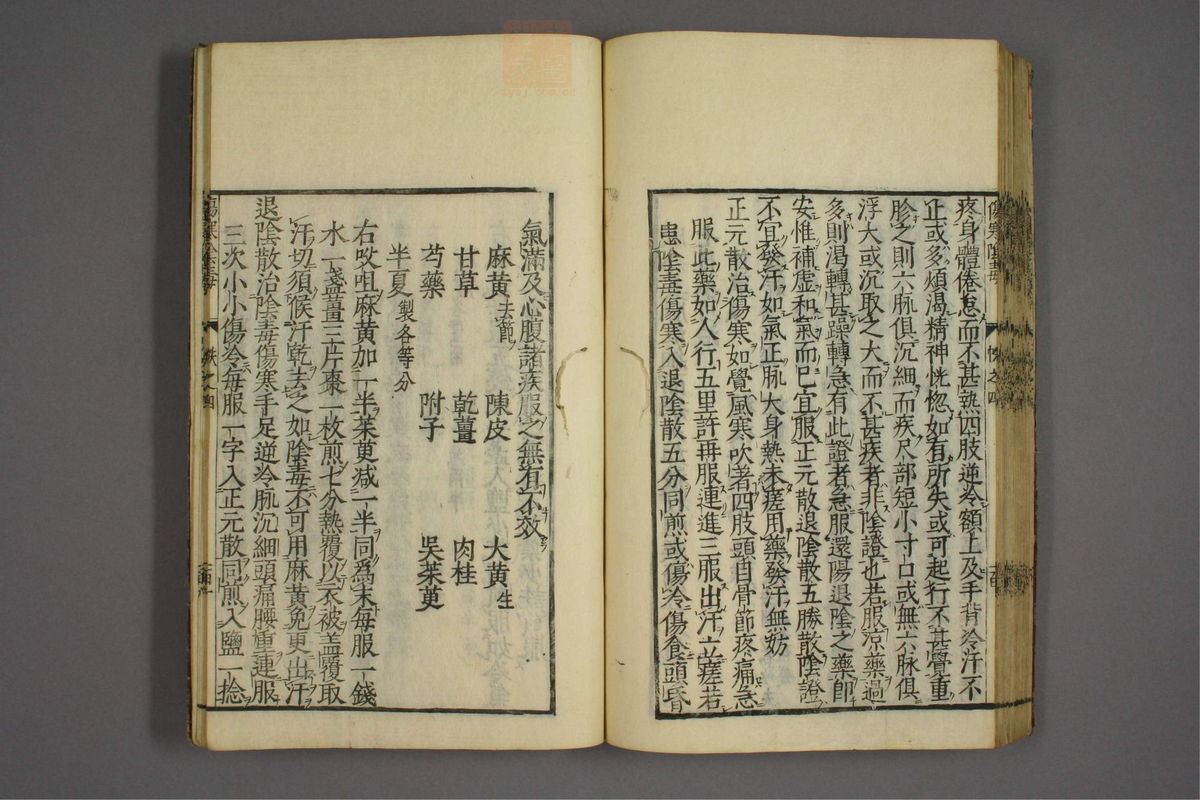 疼身體倦怠而不甚熱四肢逆冷額上及手背冷汗不
止或多煩渴精神恍惚如有所失或可起行不甚覺重
胗之則六脉俱沉細而疾尺部短小寸口或無六脉俱
浮大或沉取之大而不甚疾者非陰證也若服涼藥過
多則渴轉甚躁轉急有此證者急服還陽退陰之藥即
安惟補虛和氣而巳宜服正元散退陰散五勝散陰證
不宜發汗如氣正脉大身熱未瘥用藥發汗無妨
正元散治傷寒如覺風寒吹著四肢頭目骨節疼痛急
服此藥如人行五里許再服連進三服出汗立瘥若
患陰毒傷寒入退陰散五分同煎或傷冷傷食頭昏
氣滿及心腹諸疾服之無有不效
麻黃去節 陳皮 大黃生
甘草 乾薑 肉桂
芍藥 附子 吳茱萸
半夏製各等分
右㕮咀麻黃加一半茱萸減一半同爲末每服一錢
水一盞薑三片棗一枚煎七分熱覆以衣被盖覆取
汗切須候汗乾去之如陰毒不可用麻黃免更出汗
退陰散治陰毒傷寒手足逆冷脉沉細頭痛腰重連服
三次小小傷冷每服一字入正元散同煎入鹽一捻